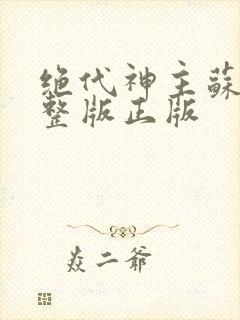 绝代神主蘇
整版正版
焱二爷